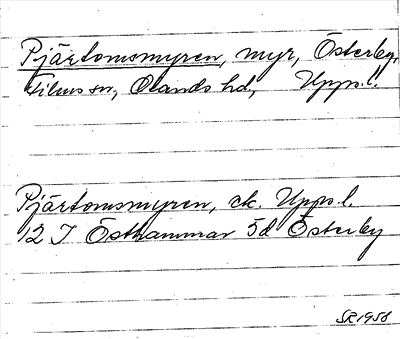 Pjärtomsmyren, myr, Österby,
Films sn, Olands hd, Upps.l.
Pjärtomsmyren, ek. Upps.l.
12 I Östhammar 5d Österby
SR 1958